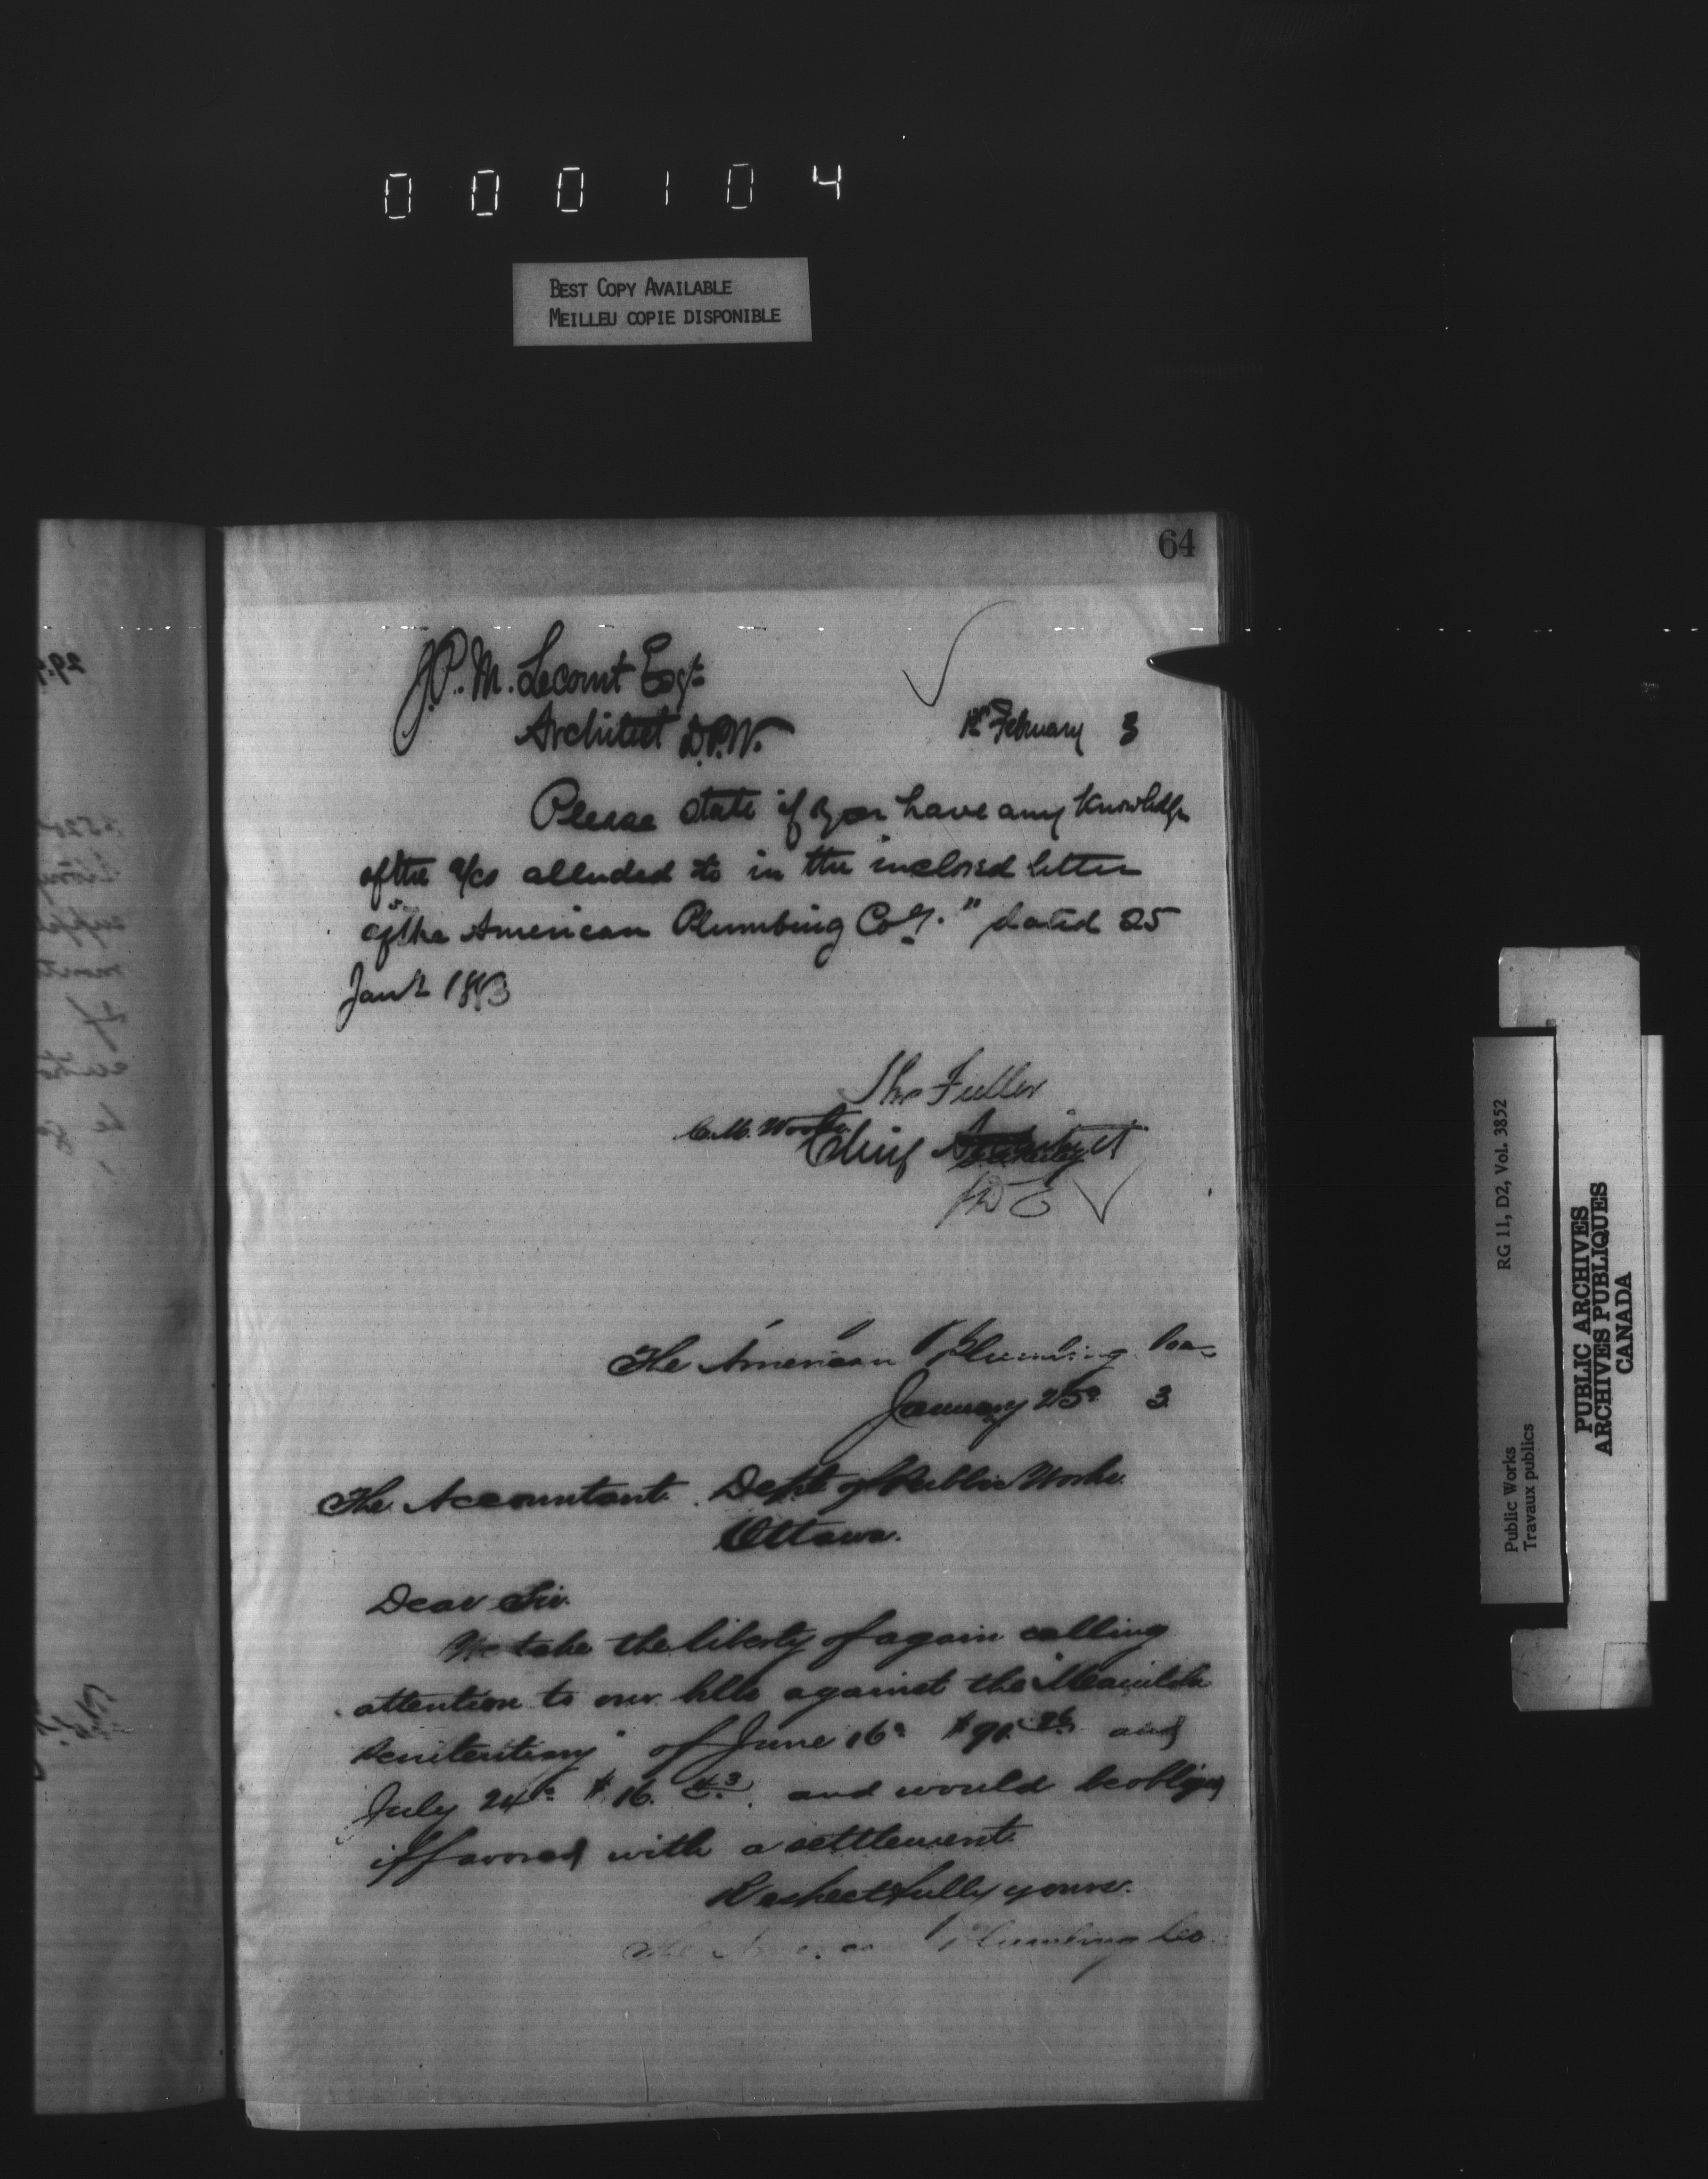 000104
BEST COPY AVAILABLE
MEILLEU COPIE DISPONIBLE
64
J.P.M. Lecourt Esqr
Architect D.P.W.
February 3
Please state if you have any knowledge
of the a/cs alluded to in the inclosed letter
of "the American Plumbing Coy." dated 25
Jany 1883
Tho Fuller
Chief
The American Plumbing Co
January 25 3
The Accountant. Dept of Public Works
Ottawa.
Dear Sir.
We take the liberty of again calling
attention to our bills against the
Penitentiary" of June 16 $91. 26 and
July 24 $16. 43. and would be obliged
if favored with a settlement
Respectfully yours.
The American Plumbing Co.
Public Works
Travaux publics
RG 11, D2, Vol. 3852
PUBLIC ARCHIVES
ARCHIVES PUBLIQUES
CANADA